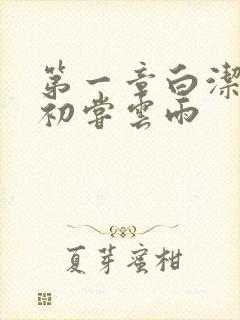 第一章白潔
初嘗雲雨
夏芽蜜柑